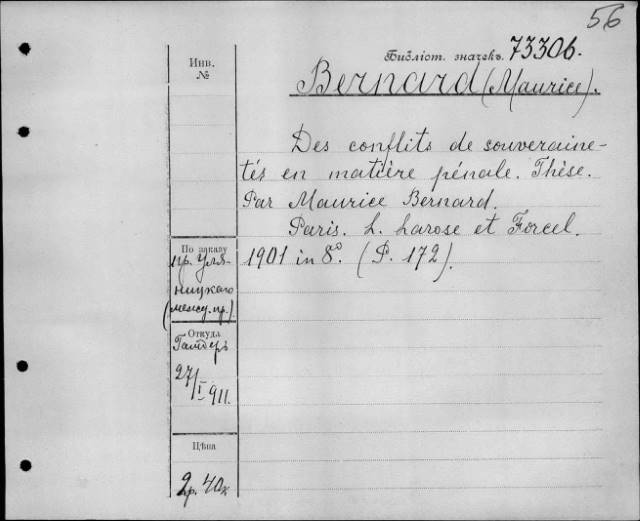 56
Библіот. значекъ 73306.
Инв.
№
Bernard (Maurice).
Des conflits de souveraine-
tés en matière pénale. Thèse.
Par Maurice Bernard.
Paris. L. Larose et Forcel.
1901 in 8°. (P. 172).
По заказу
пр. Уля-
ницкаго
(межд. пр.)
Откуда
27/I 911.
Цѣна
2р. 40к